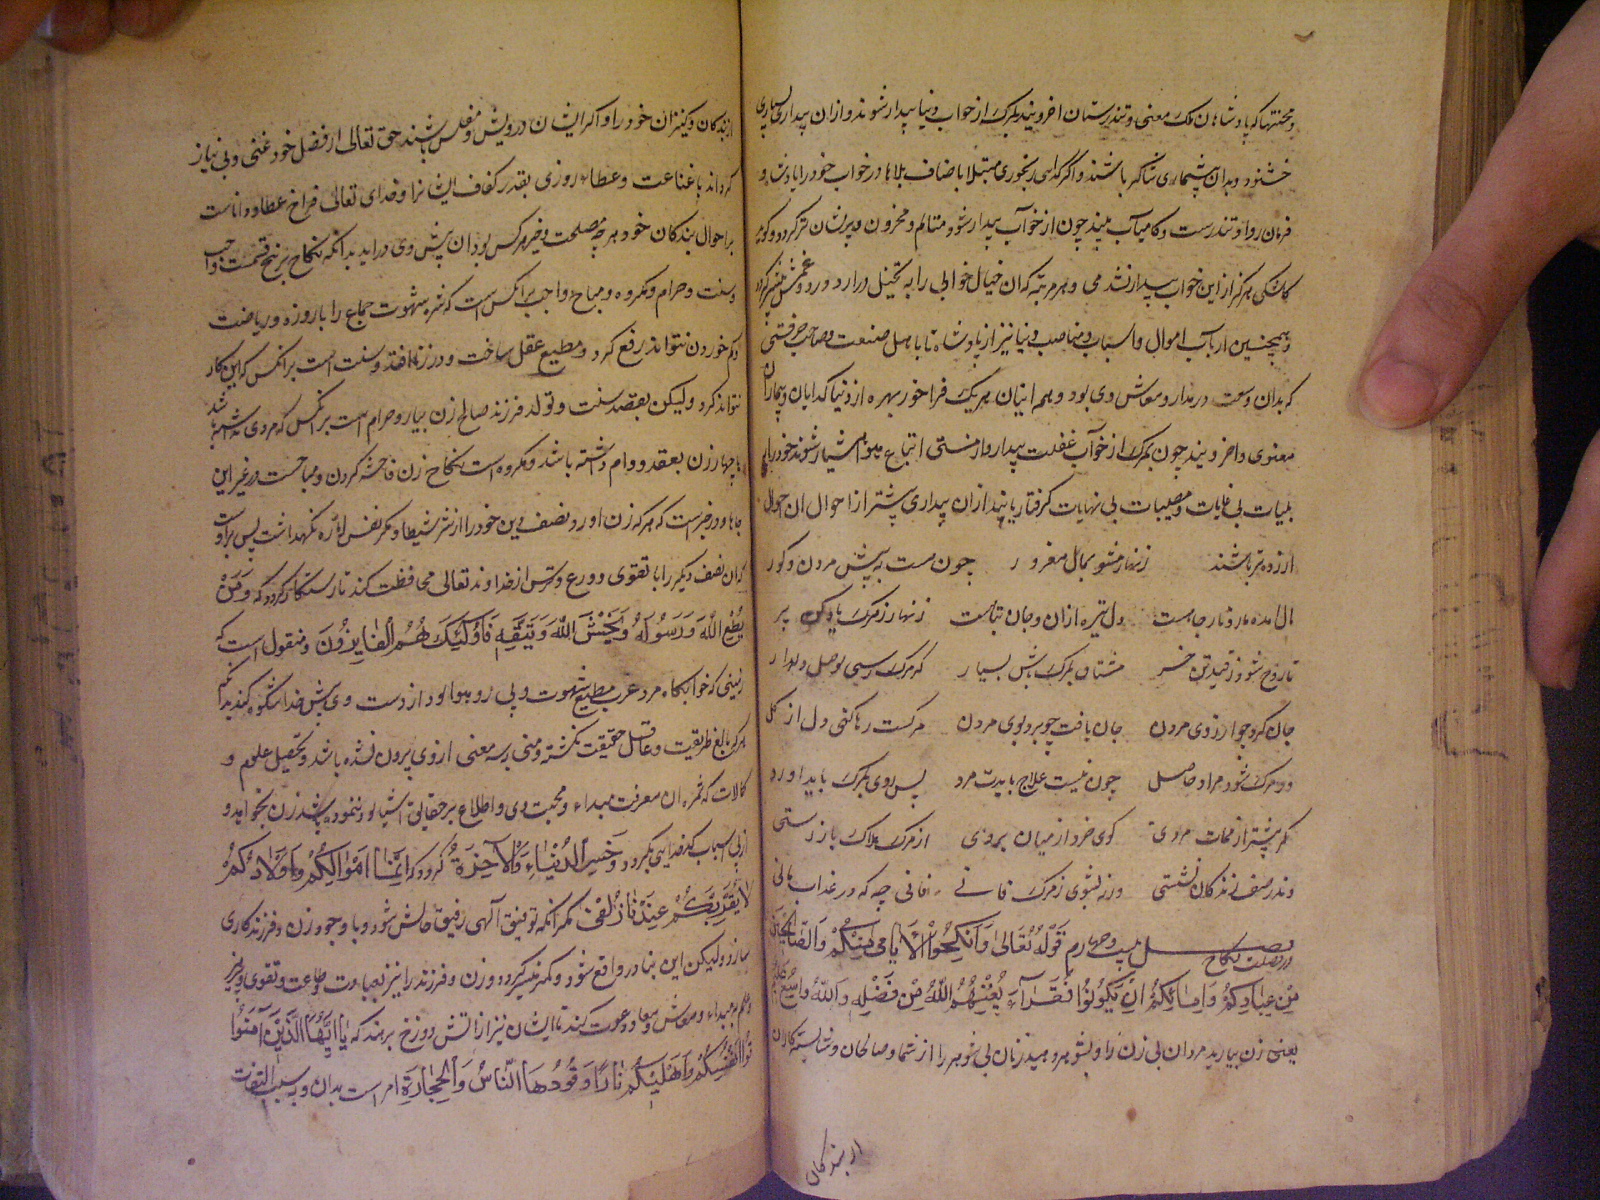 و محنتها که پادشاهان ملک معنی و تندرستان اخروینید بمرک از خواب دنیا بیدار شوند و ازان بیداری بسیاری
خشنود و بدان بیشماری شاکر باشند و اگر کدای رنجوری مبتلا باصناف بلاها در خواب خود را پادشاه و
فرمان روا و تندرست و کامیاب بیند چون از خواب بیدار شود متالم و محزون و پریشان تر کردد و کوید
کاشکی هرکز از این خواب بیدار نشدمی و هر مرتبه که ان خیال خوابی را به تخیل در ارد درد و غمش
و همچنین ارباب اموال و اسباب و مناصب دنیا نیز از پادشاه تا باهل صنعت و صاحب حرفتی
که بدان وسعت در مدار و معاش وی بود و همه اینان هر یک فراخور بهره از دنیا کدایان و بیماران
معنوی و اخرویند چون بمرک از خواب غفلت بیدار و از مستی اتباع هوا هشیار شوند خود را
بلیات بی غایات و مصیبات بی نهایات کرفتار یابند ازان بیداری بیشتر از احوال ان احوال
ازرده تر باشند زنهار مشو بمال مغرور چون هست به پیش مردن و کور
مال امده مار و نار جاهست دل تیره ازان و جان تباهست زنهار زمرک یاد کن پر
تا روح شود ز قید تن حر مشتاق بمرک باش بسیار که مرک رسی بوصل دلدار
جان کرد چو ارزوی مردن جان یافت چو برد بوی مردن مرکست رهاکنی دل از کل
وز مرک شود مراد حاصل چون نیست علاج بایدت مرد پس روی بمرک باید اورد
کر پیشتر از ممات مردی کوی خرد از میان بردی از مرک هلاک باز رستی
وندر صف زندکان نشستی ور نه نشوی زمرک فانی فانی چه که در عذاب مانی
فصل بیست و چهارم در فضیلت نکاح قوله تعالی وَاَنْکِحُوا الْاَیامی مِنْکُمْ وَالصّالِحینَ
مِنْ عِبادِکُمْ وَاِمائِکُمْ اِنْ یَکُونُوا فُقَراءَ یُغْنِهِمُ اللّهُ مِنْ فَضْلِه وَاللّهُ واسِعٌ عَلیمٌ
یعنی زن بیارید مردان بی زن را و بشوهر دهید زنان بی شوهر را از شما و صالحان و شایسته کاران
از بندکان
از بندکان و کنیزان خود را و اکر ایشان درویش و مفلس باشند حق تعالی از فضل خود غنی و بی نیاز
کرداند با غناعت و عطاء روزی بقدر کفاف ایشانرا و خدای تعالی فراخ عطا و داناست
بر احوال بندکان خود هر چه مصلحت و خیر هر کس بود ان پیش وی دراید بدانکه نکاح بر پنج قسمت واجب
و سنت و حرام و مکروه و مباح واجب برانکس است که شره شهوت جماع را با روزه و ریاضت
و کم خوردن نتواند رفع کرد و مطیع عقل ساخت و در زنا افتد و سنت است برانکس که این کار
نتواند کرد و لیکن بقصد سنت و تولد فرزند صالح زن بیارد و حرام است برانکس که مردی نداشته باشد
یا چهار زن بعقد دوام داشته باشد و مکروه است نکاح زن فاحشه کردن و مباحست در غیر این
جاها و در خبر است که هر که زن اورد نصف دین خود را از شر شیطان و مکر نفس اماره نکهداشت پس بر اوست
که ان نصف دیکر را با تقوی و ورع و ترس از خداوند تعالی محافظت کند تا رستکار کردد که وَمَنْ
یُطِعِ اللّهَ وَرَسُولَهُ وَیَخْشَ اللّهَ وَیَتَّقْهِ فَاُولئِکَ هُمُ الْفایِزُونَ و منقول است که
زمینی که خوابکاه مرد عزب مطیع شهوت و پی رو هوا بود از دست وی پیش خدا شکوه کند بدانکه
هر که بالغ طریقت و عاقل حقیقت نکشته و منی سه معنی از وی بیرون نشده باشد و تحصیل علم و
کمالات که ثمره ان معرفت مبداء و محبت وی و اطلاع بر حقایق اشیا بود ننموده باشد زن نخواهد و
از پی اسباب کدخدایی نکردد و خَسِرَ الدُّنْیا وَالْاخِرَةَ کردد که اِنَّما اَمْوالُکُمْ وَاَوْلادُکُمْ
لا یُقَرِّبُکُمْ عِنْدَنا زُلْفی مکر انکه توفیق الهی رفیق حالش شود و با وجود زن و فرزند کاری
سازد و لیکن این بنادر واقع شود و کمتر میسر کردد و زن و فرزند را نیز بعبادت و طاعت و تقوی و پرهیز
و علم و مبداء و معاش و معاد دعوت کند تا ایشان نیز از اتش دوزخ برهند که یا اَیُّهَا الَّذینَ امَنُوا
قُوا اَنْفُسَکُمْ وَاَهْلیکُمْ نارًا وَقُودُهَا النّاسُ وَالْحِجارَةُ امر است بدان و به سبب التفات